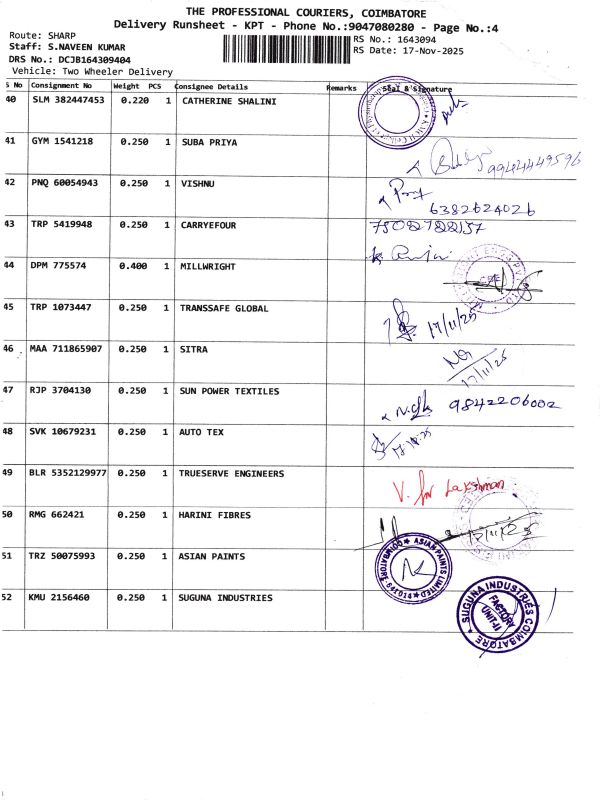 THE PROFESSIONAL COURIERS, COIMBATORE
Delivery Runsheet - KPT - Phone No.:9047080280 - Page No.:4
Route: SHARP
RS No.: 1643094
Staff: S.NAVEEN KUMAR
RS Date: 17-Nov-2025
DRS No.: DCJB164309404
Vehicle: Two Wheeler Delivery
S No Consignment No Weight PCS Consignee Details Remarks Seal & Signature
40 SLM 382447453 0.220 1 CATHERINE SHALINI
41 GYM 1541218 0.250 1 SUBA PRIYA
9944449596
42 PNQ 60054943 0.250 1 VISHNU
6382624026
43 TRP 5419948 0.250 1 CARRYEFOUR
44 DPM 775574 0.400 1 MILLWRIGHT
45 TRP 1073447 0.250 1 TRANSSAFE GLOBAL
17/11/25
46 MAA 711865907 0.250 1 SITRA
17/11/25
47 RJP 3704130 0.250 1 SUN POWER TEXTILES
9842206002
48 SVK 10679231 0.250 1 AUTO TEX
49 BLR 5352129977 0.250 1 TRUESERVE ENGINEERS
V. for Lakshman
50 RMG 662421 0.250 1 HARINI FIBRES
17/11/25
51 TRZ 50075993 0.250 1 ASIAN PAINTS
ASIAN PAINTS LIMITED COIMBATORE - 641014
52 KMU 2156460 0.250 1 SUGUNA INDUSTRIES
SUGUNA INDUSTRIES COIMBATORE
FACTORY
UNIT-II